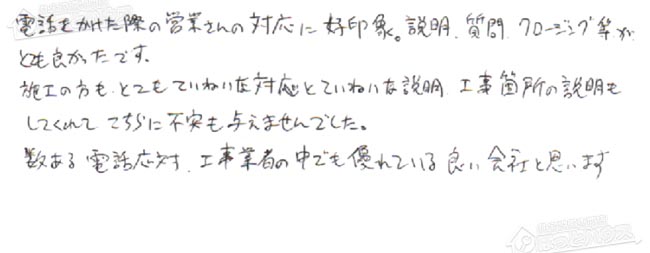 電話をかけた際の営業さんの対応に好印象。説明、質問、クロージング等が
とても良かったです。
施工の方も、とてもていねいな対応とていねいな説明、工事箇所の説明も
してくれて こちらに不安も与えませんでした。
数ある電話応対、工事業者の中でも優れている良い会社と思います